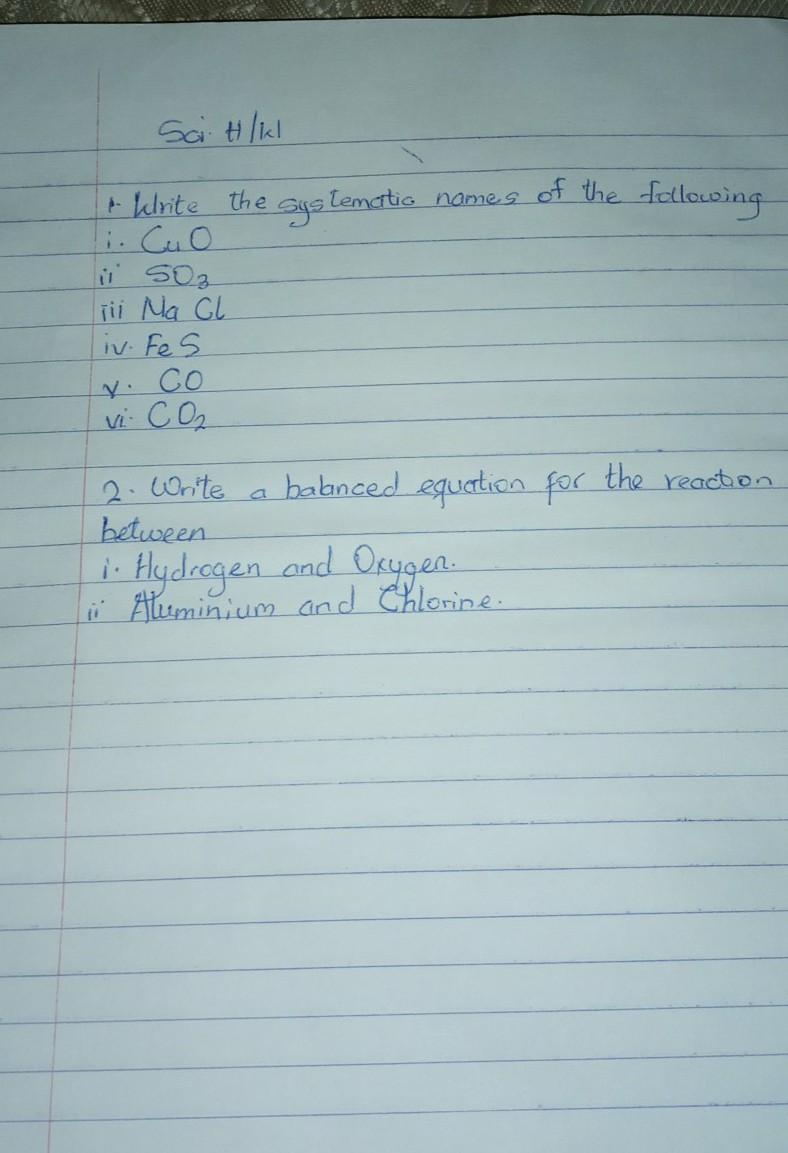 Sci. H/k1
1. Write the systematic names of the following
i. CuO
ii SO3
iii NaCl
iv. FeS
v. CO
vi. CO2
2. Write a balanced equation for the reaction
between
i. Hydrogen and Oxygen.
ii Aluminium and Chlorine.